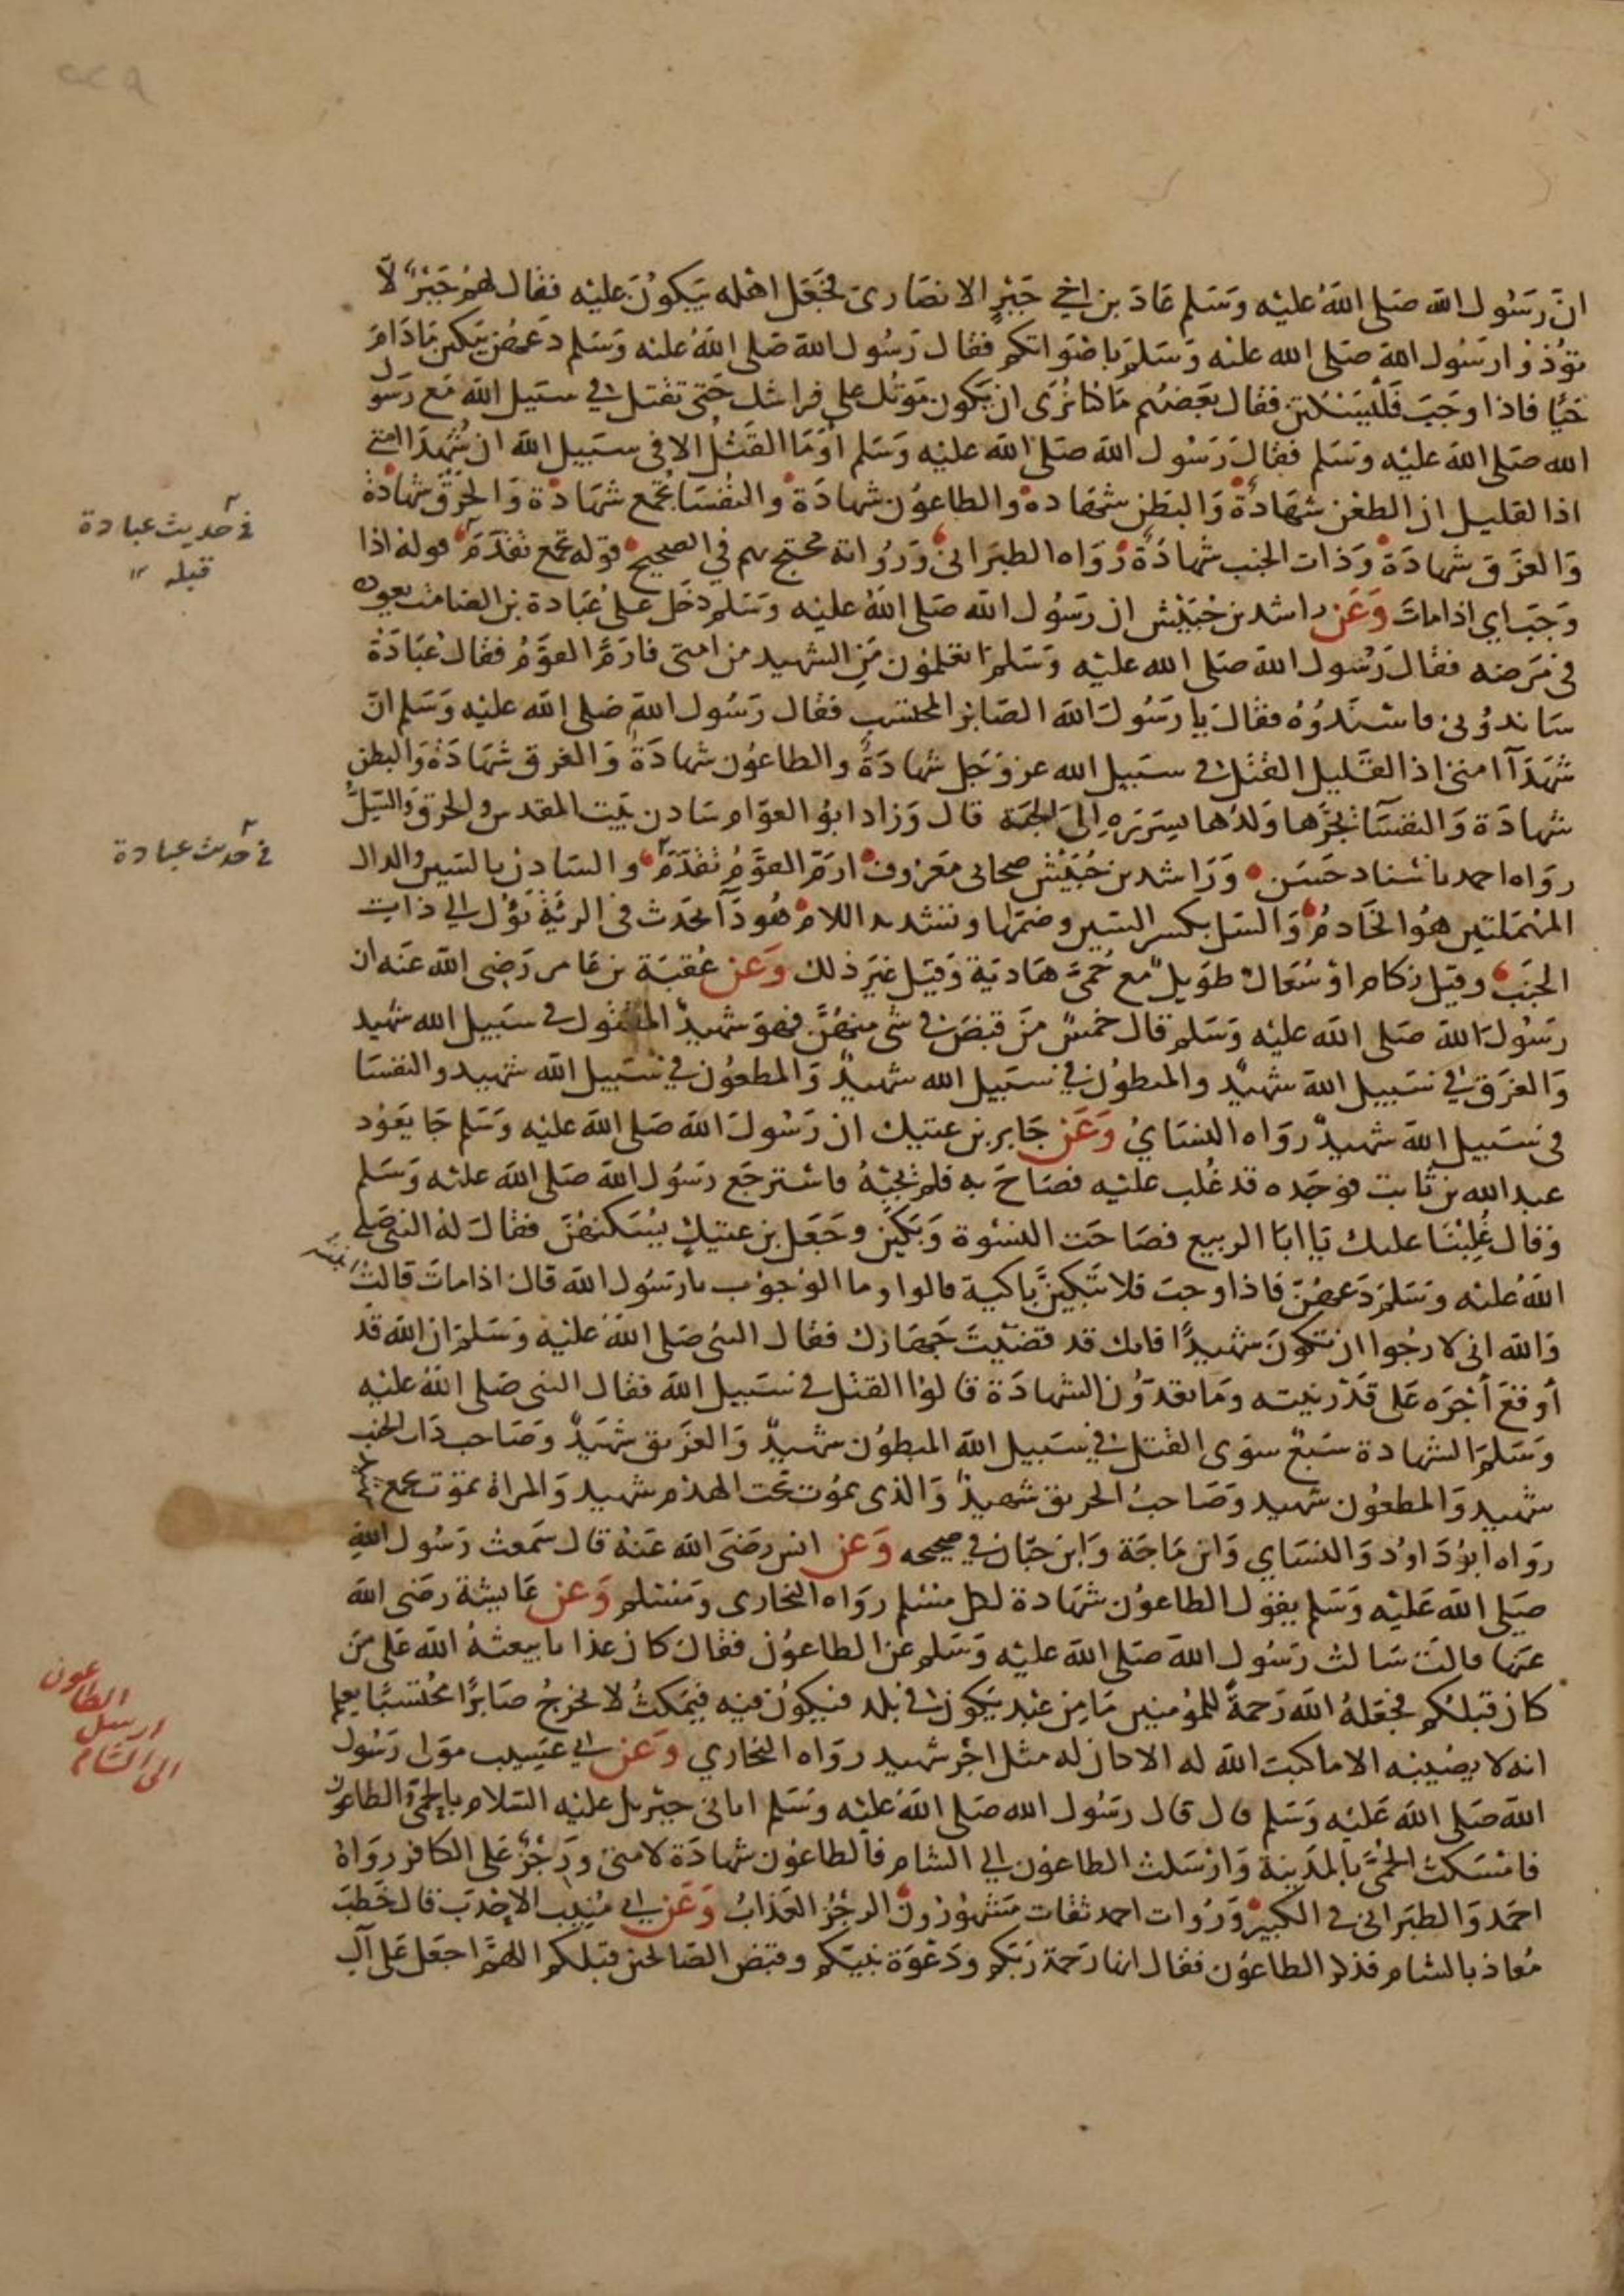 ٢٢٩
ان رسول الله صلى الله عليه وسلم عاد بن اخي جبر الانصاري فجعل اهله يبكون عليه فقال لهم جبر لا
تؤذوا رسول الله صلى الله عليه وسلم باصواتكم فقال رسول الله صلى الله عليه وسلم دعهن يبكين مادام
حيا فاذا وجب فليسكتن فقال بعضهم ما كنا نرى ان يكون موتك على فراشك حتى تقتل في سبيل الله مع رسول
الله صلى الله عليه وسلم فقال رسول الله صلى الله عليه وسلم أوما القتل الا في سبيل الله ان شهدا امتي
اذا لقليل ان الطعن شهادة والبطن شهادة والطاعون شهادة والنفسا بجمع شهادة والحرق شهادة
والغرق شهادة وذات الجنب شهادة رواه الطبراني ورواته محتج بهم في الصحيح قوله بجمع تقدم قوله اذا
وجب اي اذا مات وعن راشد بن حبيش ان رسول الله صلى الله عليه وسلم دخل على عبادة بن الصامت يعوده
في مرضه فقال رسول الله صلى الله عليه وسلم اتعلمون من الشهيد من امتي فارم القوم فقال عبادة
ساندوني فاسندوه فقال يا رسول الله الصابر المحتسب فقال رسول الله صلى الله عليه وسلم ان
شهدآ امتي اذا لقليل القتل في سبيل الله عز وجل شهادة والطاعون شهادة والغرق شهادة والبطن
شهادة والنفسآ يجرها ولدها بسرره الى الجنة قال وزاد ابو العوام سادن بيت المقدس والحرق والسل
رواه احمد باسناد حسن وراشد بن حبيش صحابي معروف ارم القوم تقدم والسادن بالسين والدال
المهملتين هو الخادم والسل بكسر السين وضمها وتشديد اللام هو دآ يحدث في الرئة يؤل الى ذات
الجنب وقيل زكام او سعال طويل مع حمى هادية وقيل غير ذلك وعن عقبة بن عامر رضي الله عنه ان
رسول الله صلى الله عليه وسلم قال خمس من قبض في شي منهن فهو شهيد المقتول في سبيل الله شهيد
والغرق في سبيل الله شهيد والمبطون في سبيل الله شهيد والمطعون في سبيل الله شهيد والنفسا
في سبيل الله شهيد رواه النساي وعن جابر بن عتيك ان رسول الله صلى الله عليه وسلم جا يعود
عبد الله بن ثابت فوجده قد غلب عليه فصاح به فلم يجبه فاسترجع رسول الله صلى الله عليه وسلم
وقال غلبنا عليك يا ابا الربيع فصاحت النسوة وبكين وجعل بن عتيك يسكتهن فقال له النبي صلى
الله عليه وسلم دعهن فاذا وجبت فلا تبكين باكية قالوا وما الوجوب يا رسول الله قال اذا مات قالت ابنته
والله اني لارجوا ان تكون شهيدا فانك قد قضيت جهازك فقال النبي صلى الله عليه وسلم ان الله قد
أوقع أجره على قدر نيته وما تعدون الشهادة قالوا القتل في سبيل الله فقال النبي صلى الله عليه
وسلم الشهادة سبع سوى القتل في سبيل الله المبطون شهيد والغريق شهيد وصاحب ذات الجنب
شهيد والمطعون شهيد وصاحب الحريق شهيد والذي يموت تحت الهدم شهيد والمراة تموت بجمع شهيد
رواه ابو داود والنساي وابن ماجة وابن حبان في صحيحه وعن انس رضي الله عنه قال سمعت رسول الله
صلى الله عليه وسلم يقول الطاعون شهادة لكل مسلم رواه البخاري ومسلم وعن عايشة رضي الله
عنها قالت سالت رسول الله صلى الله عليه وسلم عن الطاعون فقال كان عذابا يبعثه الله على من
كان قبلكم فجعله الله رحمة للمؤمنين ما من عبد يكون في بلد فيكون فيه فيمكث لا يخرج صابرا محتسبا يعلم
انه لا يصيبه الا ما كتب الله له الا كان له مثل اجر شهيد رواه البخاري وعن ابي عسيب مولى رسول
الله صلى الله عليه وسلم قال قال رسول الله صلى الله عليه وسلم اتاني جبريل عليه السلام بالحمى والطاعون
فامسكت الحمى بالمدينة وارسلت الطاعون الى الشام فالطاعون شهادة لامتي ورجز على الكافر رواه
احمد والطبراني في الكبير وروات احمد ثقات مشهورون الرجز العذاب وعن ابي منيب الاحدب قال خطب
معاذ بالشام فذكر الطاعون فقال انها رحمة ربكم ودعوة نبيكم وقبض الصالحين قبلكم اللهم اجعل على آل
في حديث عبادة
قبله ١٢
في حديث عبادة
الطاعون
ارسل
الى الشام